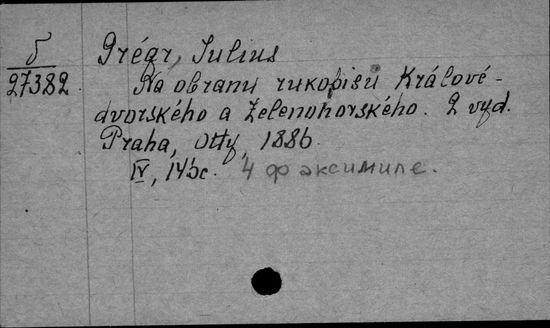 б
27382
Prégr, Julius
Na obranu rukopisů Králové-
dvorského a Zelenohorského. 2 vyd.
Praha, Otty, 1886.
IV, 145с. 4 факсимиле.